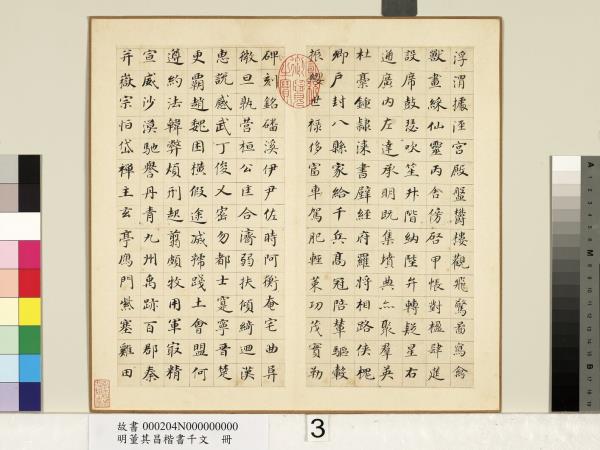 浮渭據涇宮殿盤欝樓觀飛驚啚寫禽
獸畫綵仙靈丙舍傍啓甲帳對楹肆筵
設席鼓瑟吹笙升階納陛弁轉疑星右
通廣內左達承明既集墳典亦聚羣英
杜稾鍾隸漆書壁經府羅將相路俠槐
卿戶封八縣家給千兵高冠陪輦驅轂
振纓世祿侈富車駕肥輕策功茂實勒
碑刻銘磻溪伊尹佐時阿衡奄宅曲阜
微旦孰營桓公匡合濟弱扶傾綺迴漢
惠說感武丁俊乂密勿都士寔寧晉楚
更霸趙魏困橫假途滅虢踐土會盟何
遵約法韓弊煩刑起翦頗牧用軍最精
宣威沙漠馳譽丹青九州禹跡百郡秦
并嶽宗恒岱禪主玄亭鴈門紫塞雞田
故書 000204N000000000
明董其昌楷書千文 冊
3